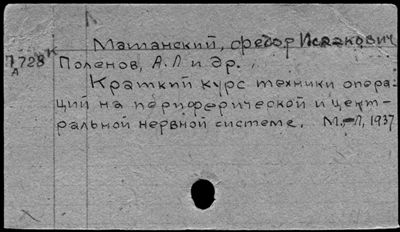 Л
Матанский, Федор Исаакович
1728 к
А
Поленов, А.Л и др.
Краткий курс техники опера-
ций на периферической и цент-
ральной нервной системе. М.-Л, 1937